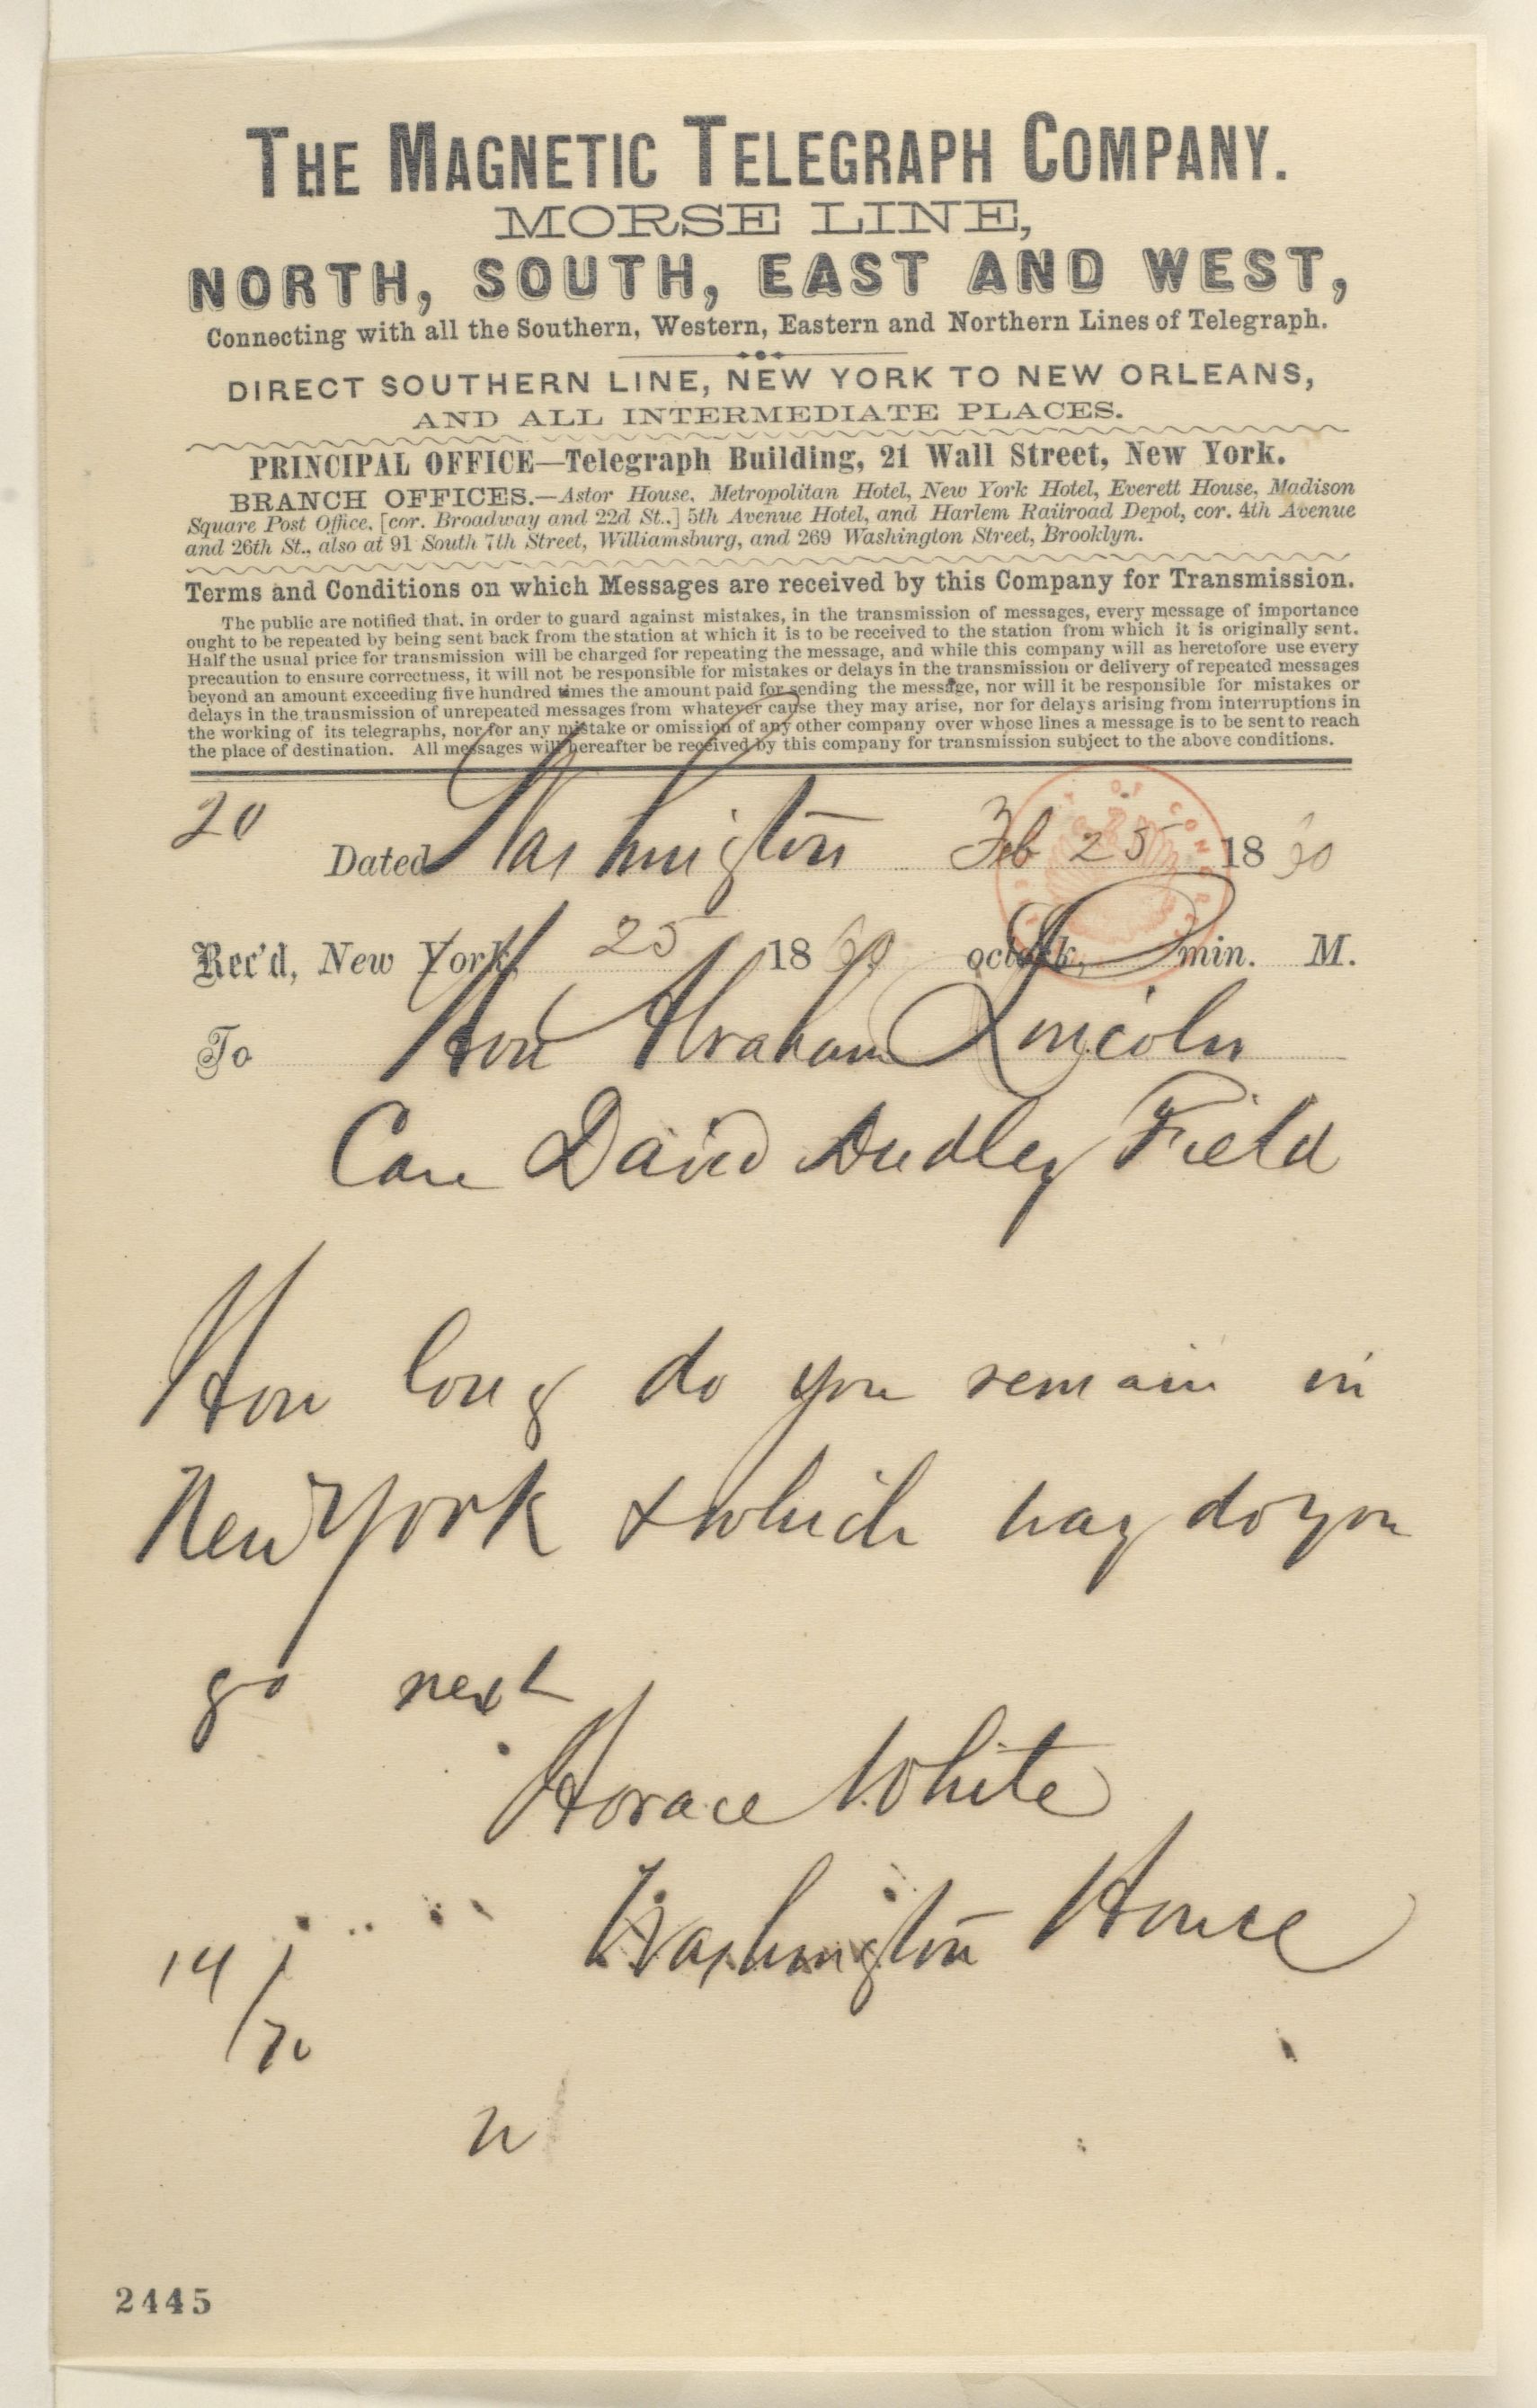 THE MAGNETIC TELEGRAPH COMPANY.
MORSE LINE,
NORTH, SOUTH, EAST AND WEST,
Connecting with all the Southern, Western, Eastern and Northern Lines of Telegraph.
DIRECT SOUTHERN LINE, NEW YORK TO NEW ORLEANS,
AND ALL INTERMEDIATE PLACES.
PRINCIPAL OFFICE—Telegraph Building, 21 Wall Street, New York.
BRANCH OFFICES.—Astor House, Metropolitan Hotel, New York Hotel, Everett House, Madison
Square Post Office, [cor. Broadway and 22d St.,] 5th Avenue Hotel, and Harlem Railroad Depot, cor. 4th Avenue
and 26th St., also at 91 South 7th Street, Williamsburg, and 269 Washington Street, Brooklyn.
Terms and Conditions on which Messages are received by this Company for Transmission.
The public are notified that, in order to guard against mistakes, in the transmission of messages, every message of importance
ought to be repeated by being sent back from the station at which it is to be received to the station from which it is originally sent.
Half the usual price for transmission will be charged for repeating the message, and while this company will as heretofore use every
precaution to ensure correctness, it will not be responsible for mistakes or delays in the transmission or delivery of repeated messages
beyond an amount exceeding five hundred times the amount paid for sending the message, nor will it be responsible for mistakes or
delays in the transmission of unrepeated messages from whatever cause they may arise, nor for delays arising from interruptions in
the working of its telegraphs, nor for any mistake or omission of any other company over whose lines a message is to be sent to reach
the place of destination. All messages will hereafter be received by this company for transmission subject to the above conditions.
20
Dated Washington Feb 25 1860
Rec'd, New York, 25 1860 oclock, min. M.
To Hon Abraham Lincoln
Care David Dudley Field
How long do you remain in
New York & which way do you
go next
Horace White
Washington House
14
/70
2445